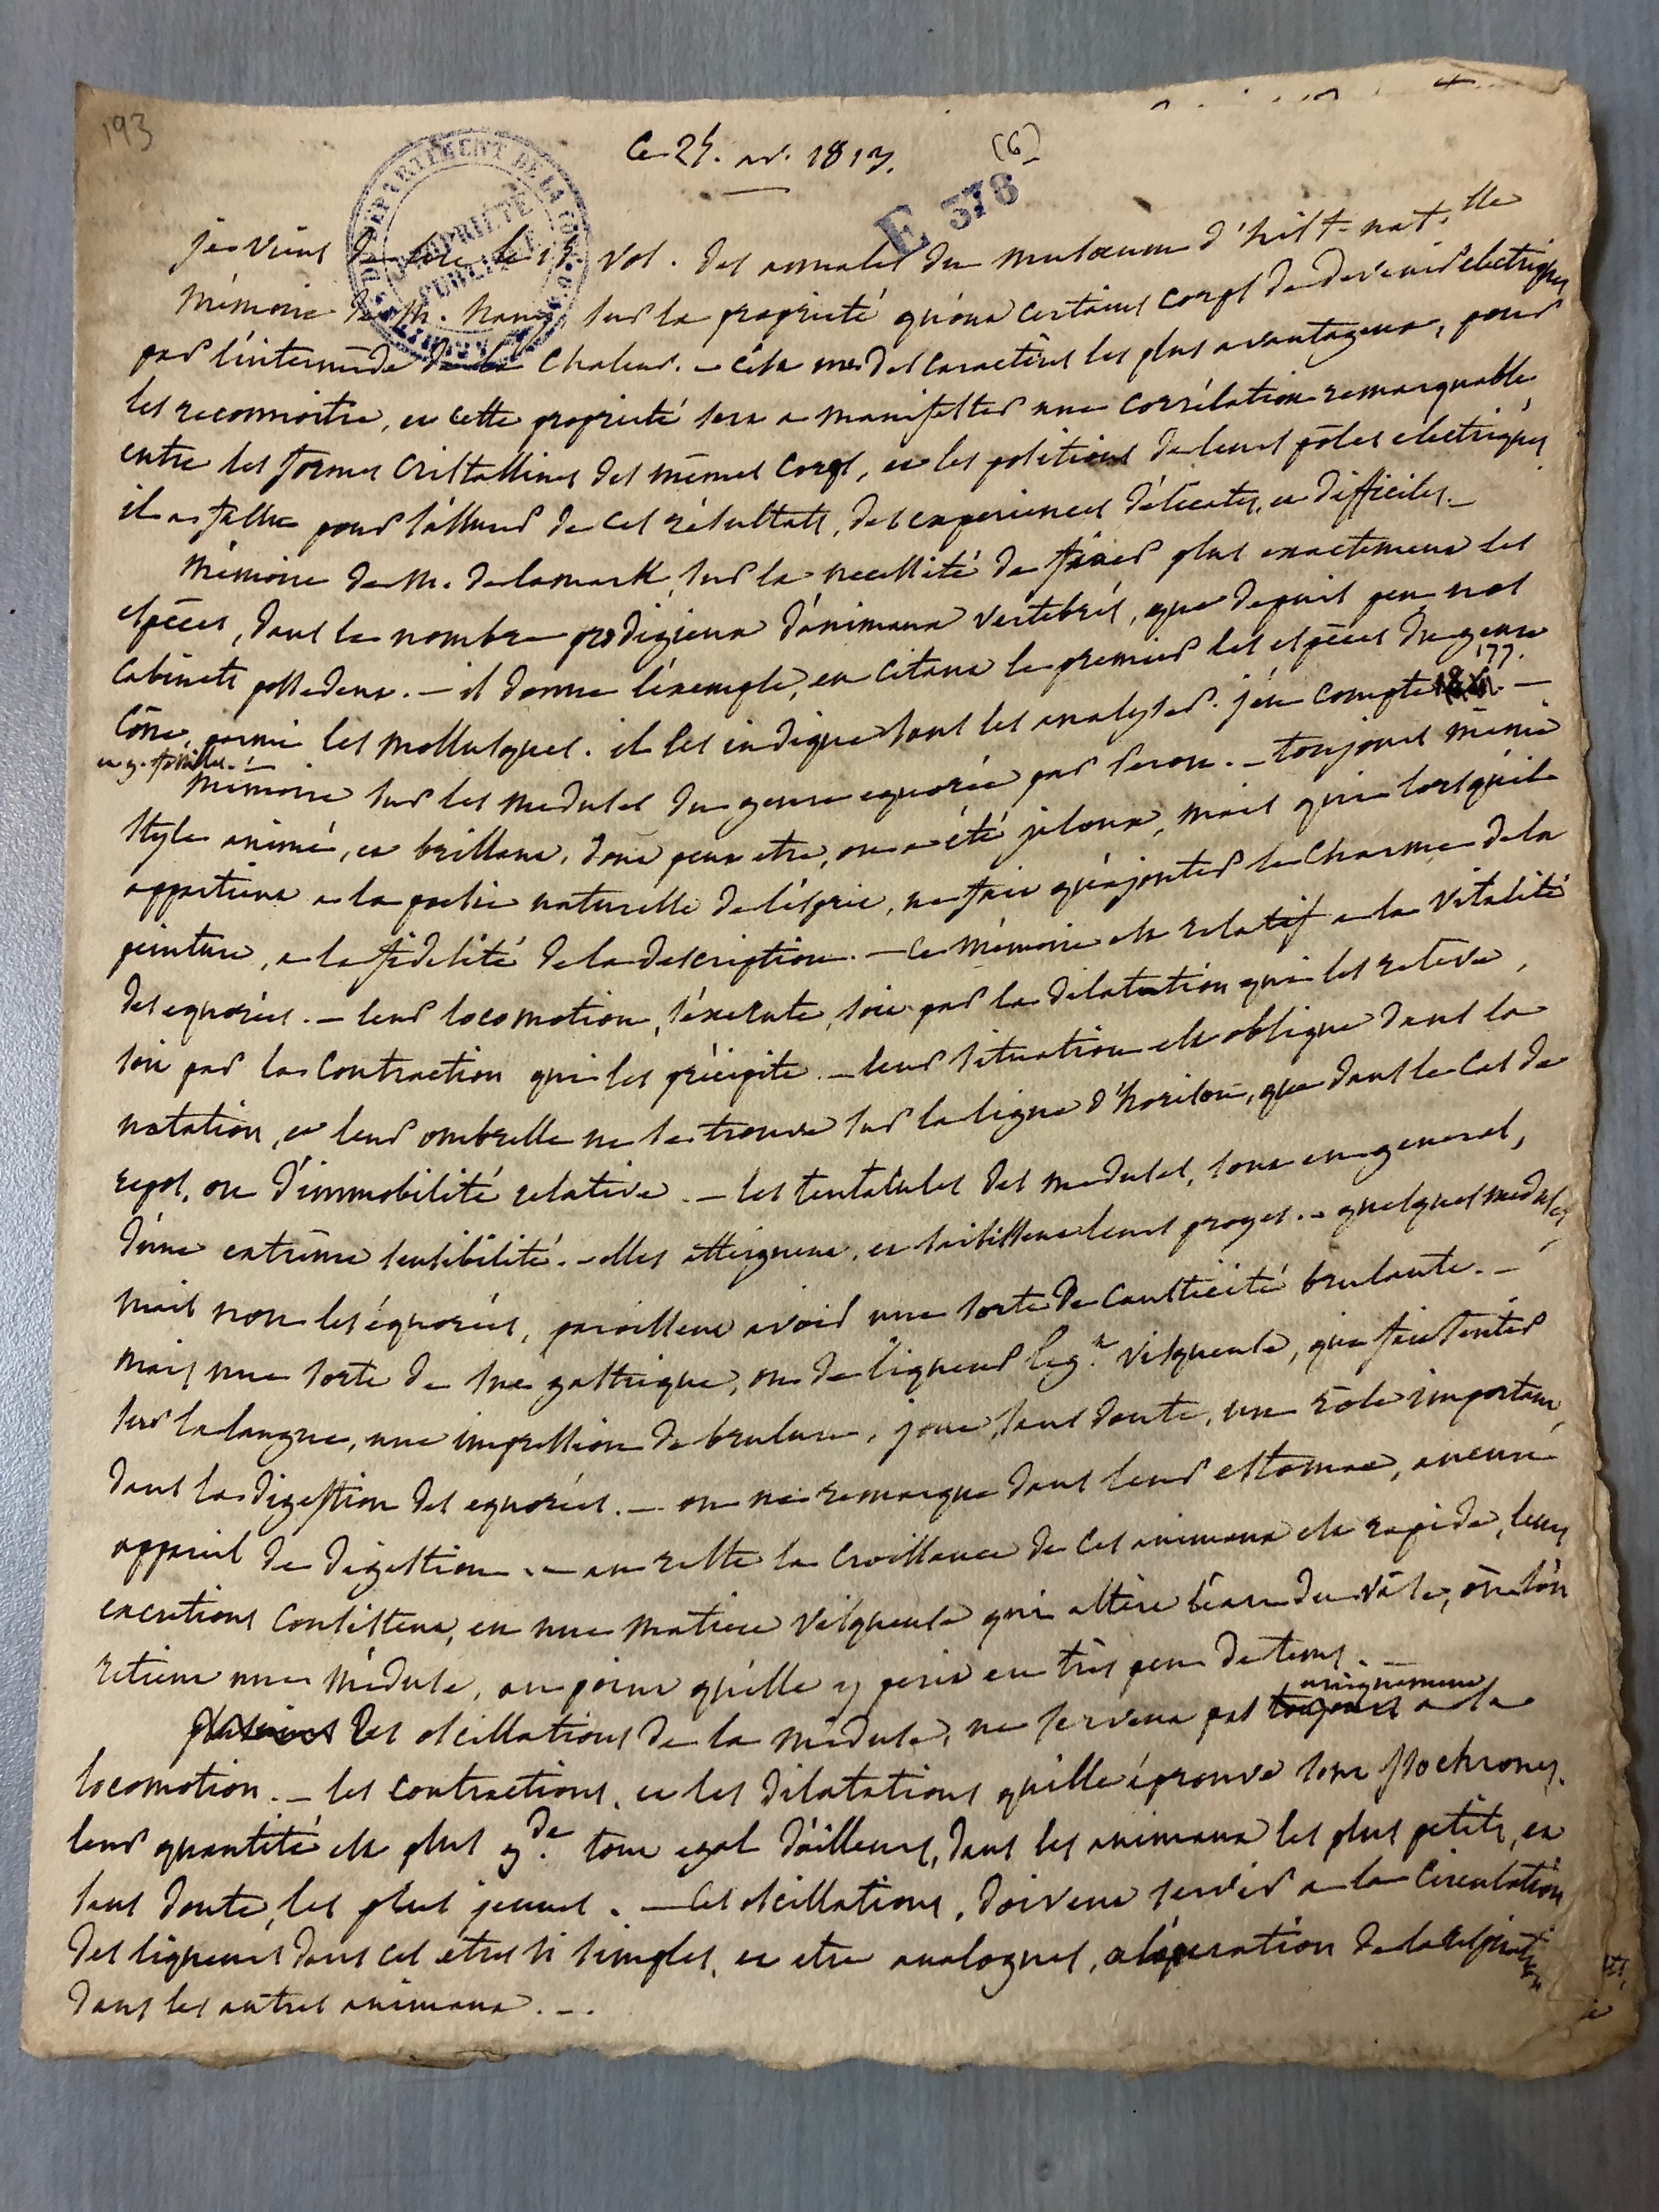 193
Ce 25. av. 1813.
(6)
E 378
DEPARTEMENT DE LA
PROPRIÉTÉ PUBLIQUE
je viens de lire le 15. vol. des annales du musaeum d'hist. nat.lle
Mémoire de M. hauy, sur la propriété qu'ont certains corps de devenir electriques
par l'intermède de la chaleur. – c'est un des caractères les plus avantageux, pour
les reconnoitre, et cette propriété sert a manifester une corrélation remarquable,
entre les formes cristallines des mêmes corps, et les positions de leurs pôles electriques
il a fallu pour s'assurer de ces résultats, des experiences délicates, et difficiles. –
Mémoire de M. delamark, sur la necessité de fixer plus exactement les
espèces, dans le nombre prodigieux d'animaux vertebrés, que depuis peu nos
cabinets possedent. – il donne l'exemple, en citant le premier les espèces du genre
Cône, parmi les mollusques. il les indique sans les analyser. j'en compte 177. –
et 9. fossiles. –
Mémoire sur les meduses du genre equorée par Peron. – toujours même
style animé, et brillant, dont peut etre, on a été jaloux, mais qui lorsqu'il
appartient a la poesie naturelle de l'esprit, ne fait qu'ajouter le charme de la
peinture, a la fidelité de la description. – Ce mémoire est relatif a la vitalité
des equorées. – leur locomotion, s'exécute, soit par la dilatation qui les releve,
soit par la contraction qui les précipite. – leur situation est oblique dans la
natation, et leur ombrelle ne se trouve sur la ligne d'horison, que dans le cas de
repos, ou d'immobilité relative. – les tentacules des meduses, sont en general,
d'une extrême sensibilité. – elles atteignent, et saisissent leurs proyes. – quelques meduses,
mais non les équorées, paroissent avoir une sorte de causticité brulante. –
mais une sorte de suc gastrique, ou de liqueur leg.t visqueuse, qui fait sentir
sur la langue, une impression de brulure, joue, sans doute, un rôle important,
dans la digestion des equorées. – on ne remarque dans leur estomac, aucun
appareil de digestion. – au reste la croissance de ces animaux est rapide, leurs
excretions consistent, en une matiere visqueuse qui altère l'eau du vase, où l'on
retient une méduse, au point qu'elle y perit en très peu de tems. –
Les oscillations de la méduse, ne servent pas uniquement a la
locomotion. – les contractions, et les dilatations qu'elle éprouve sont isochrones.
leur quantité est plus g.de tout egal d'ailleurs, dans les animaux les plus petits, et
sans doute, les plus jeunes. – Ces oscillations, doivent servir a la circulation
des liqueurs dans ces etres si simples, et etre analogues, a l'opération de la respiration
dans les autres animaux. –.